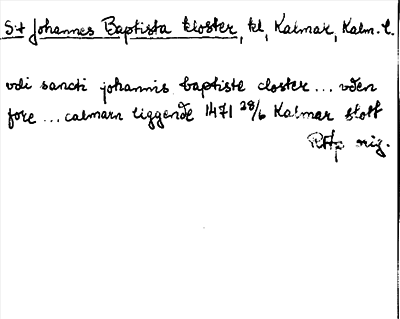 S:t Johannes Baptista kloster, kl, Kalmar, Kalm. l.
vdi sancti johannis baptiste closter ... vðen
fore ... calmarn liggende 1471 28/6 Kalmar slott
RApp orig.